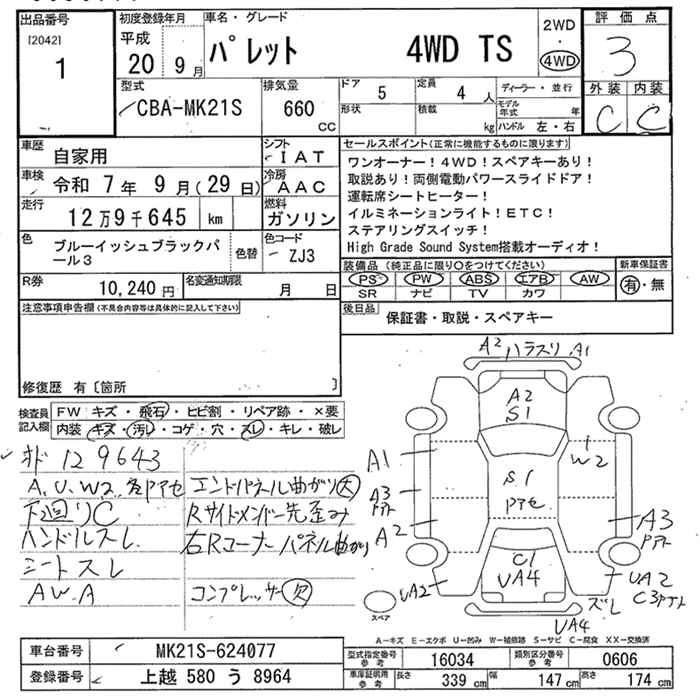 出品番号
[2042]
1
初度登録年月
平成
20 9月
車名・グレード
パレット 4WD TS
2WD
・
4WD
評価点
3
外装 内装
C C
型式
CBA-MK21S
排気量
660
CC
ドア 5
形状
定員 4 人
積載 kg
ディーラー・並行
モデル年式 年
ハンドル 左・右
車歴
自家用
車検
令和 7年 9月(29日)
走行
12万9千645 km
色
ブルーイッシュブラックパール3
色替
シフト
IAT
冷房
AAC
燃料
ガソリン
色コード
ZJ3
セールスポイント(正常に機能するものに限ります)
ワンオーナー!4WD!スペアキーあり!
取説あり!両側電動パワースライドドア!
運転席シートヒーター!
イルミネーションライト!ETC!
ステアリングスイッチ!
High Grade Sound System搭載オーディオ!
R券
10,240円
名変通知期限
月 日
装備品(純正品に限り○をつけてください)
PS PW ABS エアB AW
SR ナビ TV カワ
新車保証書
有・無
後日品
保証書・取説・スペアキー
注意事項申告欄(不具合内容等は具体的に記入して下さい)
修復歴 有〔箇所 〕
検査員記入欄
FW キズ・飛石・ヒビ割・リペア跡・×要
内装 キズ・汚レ・コゲ・穴・スレ・キレ・破レ
129643
A、U、W2、各Pアセ
下廻りC
ハンドルスレ
シートスレ
AW.A
エンドパネル曲がり大
Rサイドメンバー先歪み
右Rコーナーパネル曲がり
コンプレッサー欠
A2 ハラスリ A1
A2
S1
A1
W2
S1
Pアセ
A3
Pアト
A2
A3
Pアト
C1
UA4
UA2
UA2
C3Pアト
ズレ
UA4
スペア
A-キズ E-エクボ U-凹み W-補修跡 S-サビ C-腐食 XX-交換済
車台番号
MK21S-624077
登録番号
上越 580 う 8964
型式指定番号
参考
16034
類別区分番号
参考
0606
車庫証明用
参考
長さ 339 cm
幅 147 cm
高さ 174 cm